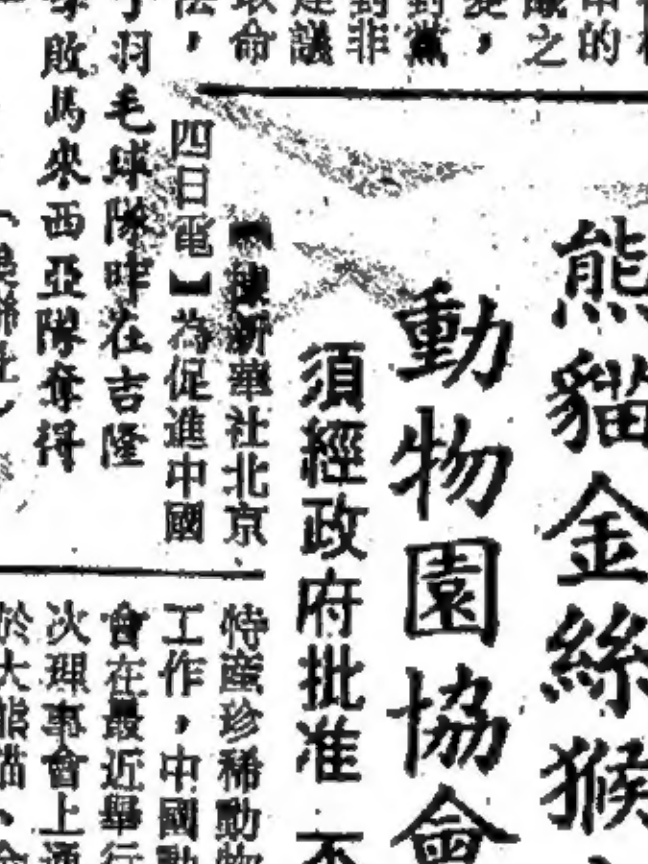 熊貓金絲猴
動物園協會
須經政府批准
【據新華社北京
四日電】為促進中國
特產珍稀動物
工作，中國動
會在最近舉行
次理事會上通
於大熊貓、金
羽毛球隊昨在吉隆
敗馬來西亞隊奪得
的
之
，
對黨
對非
建議
命
法，